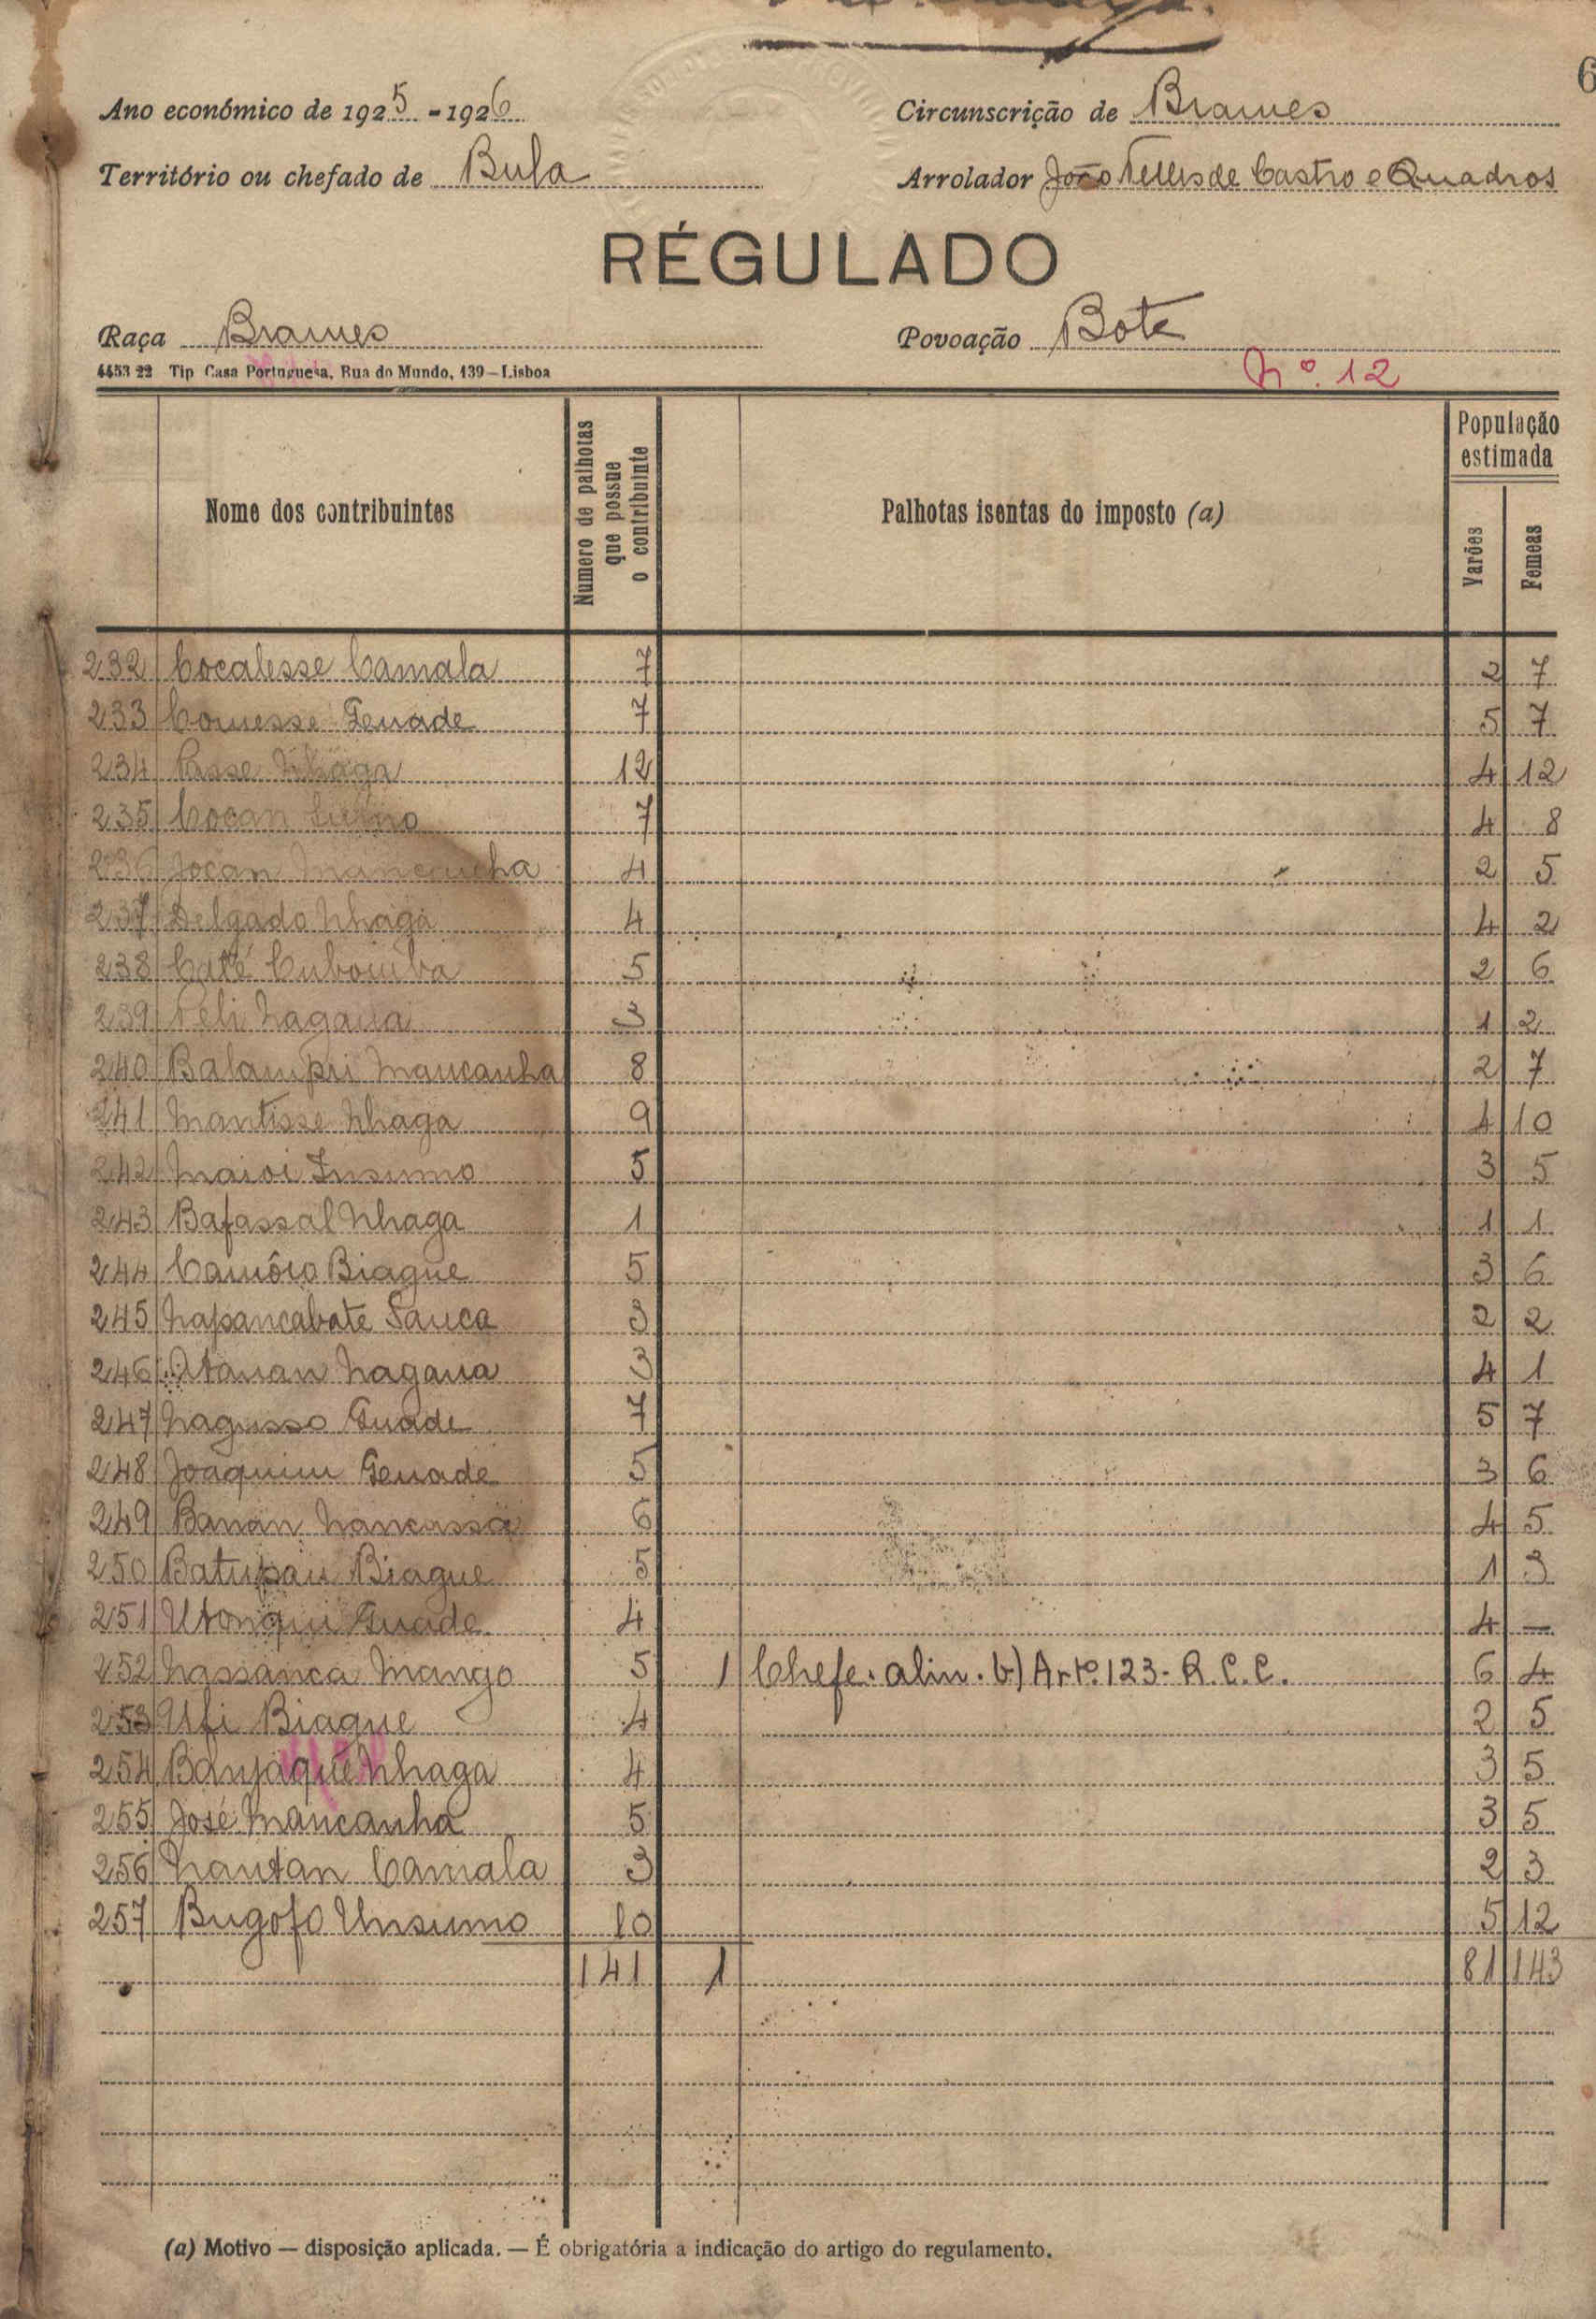 6
Ano económico de 1925 - 1926
Circunscrição de Brames
Território ou chefado de Bula
Arrolador João Telles de Castro e Quadros
RÉGULADO
Raça Brames
Povoação Bote
4453 22 Tip Casa Portuguesa, Rua do Mundo, 139 – Lisboa
Nº. 12
Nome dos contribuintes
Numero de palhotas que possue o contribuinte
Palhotas isentas do imposto (a)
População estimada
Varões
Femeas
232 Cocalesse Camala 7 2 7
233 Comesse Genade 7 5 7
234 Passe Nhaga 12 4 12
235 Cocan 7 4 8
236 Jocan Mancanha 4 2 5
237 Delgado Nhaga 4 4 2
238 Caté Cubomba 5 2 6
239 Feli Nagana 3 1 2
240 Balampri Mancanha 8 2 7
241 Mantisse Nhaga 9 4 10
242 Naioi Insumo 5 3 5
243 Bafassal Nhaga 1 1 1
244 Camôco Biague 5 3 6
245 Napancabate Sanca 3 2 2
246 Atanan Nagana 3 4 1
247 Nagusso Guade 7 5 7
248 Joaquim Genade 5 3 6
249 Banan Nancassa 6 4 5
250 Batupau Biague 5 1 3
251 Utonqui Guade 4 4 —
252 Nassanca Mango 5 1 Chefe. alin. b) Artº. 123 - R.C.C. 6 4
253 Ufi Biague 4 2 5
254 Banjaque Nhaga 4 3 5
255 José Mancanha 5 3 5
256 Nantan Camala 3 2 3
257 Bugofo Unsumo 10 5 12
141 1 81 143
(a) Motivo — disposição aplicada. — É obrigatória a indicação do artigo do regulamento.